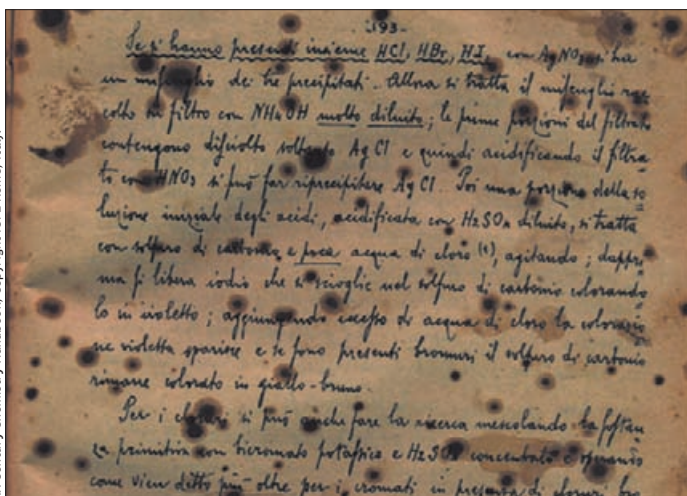 -193-
Se si hanno presenti insieme HCl, HBr, HI, con AgNO3 si ha
un miscuglio dei tre precipitati. Allora si tratta il miscuglio rac=
colto su filtro con NH4OH molto diluito; le prime porzioni del filtrato
contengono disciolto soltanto AgCl e quindi acidificando il filtra=
to con HNO3 si può far riprecipitare AgCl. Poi una porzione della so=
luzione iniziale degli acidi, acidificata con H2SO4 diluito, si tratta
con solfuro di carbonio e poca acqua di cloro (1), agitando; dappri=
ma si libera iodio che si scioglie nel solfuro di carbonio colorando=
lo in violetto; aggiungendo eccesso di acqua di cloro la colorazio=
ne violetta sparisce e se sono presenti bromuri il solfuro di carbonio
rimane colorato in giallo-bruno.
Per i cloruri si può anche fare la ricerca mescolando la sostan=
za primitiva con bicromato potassico e H2SO4 concentrato e operando
come vien detto più oltre per i cromati in presenza di cloruri